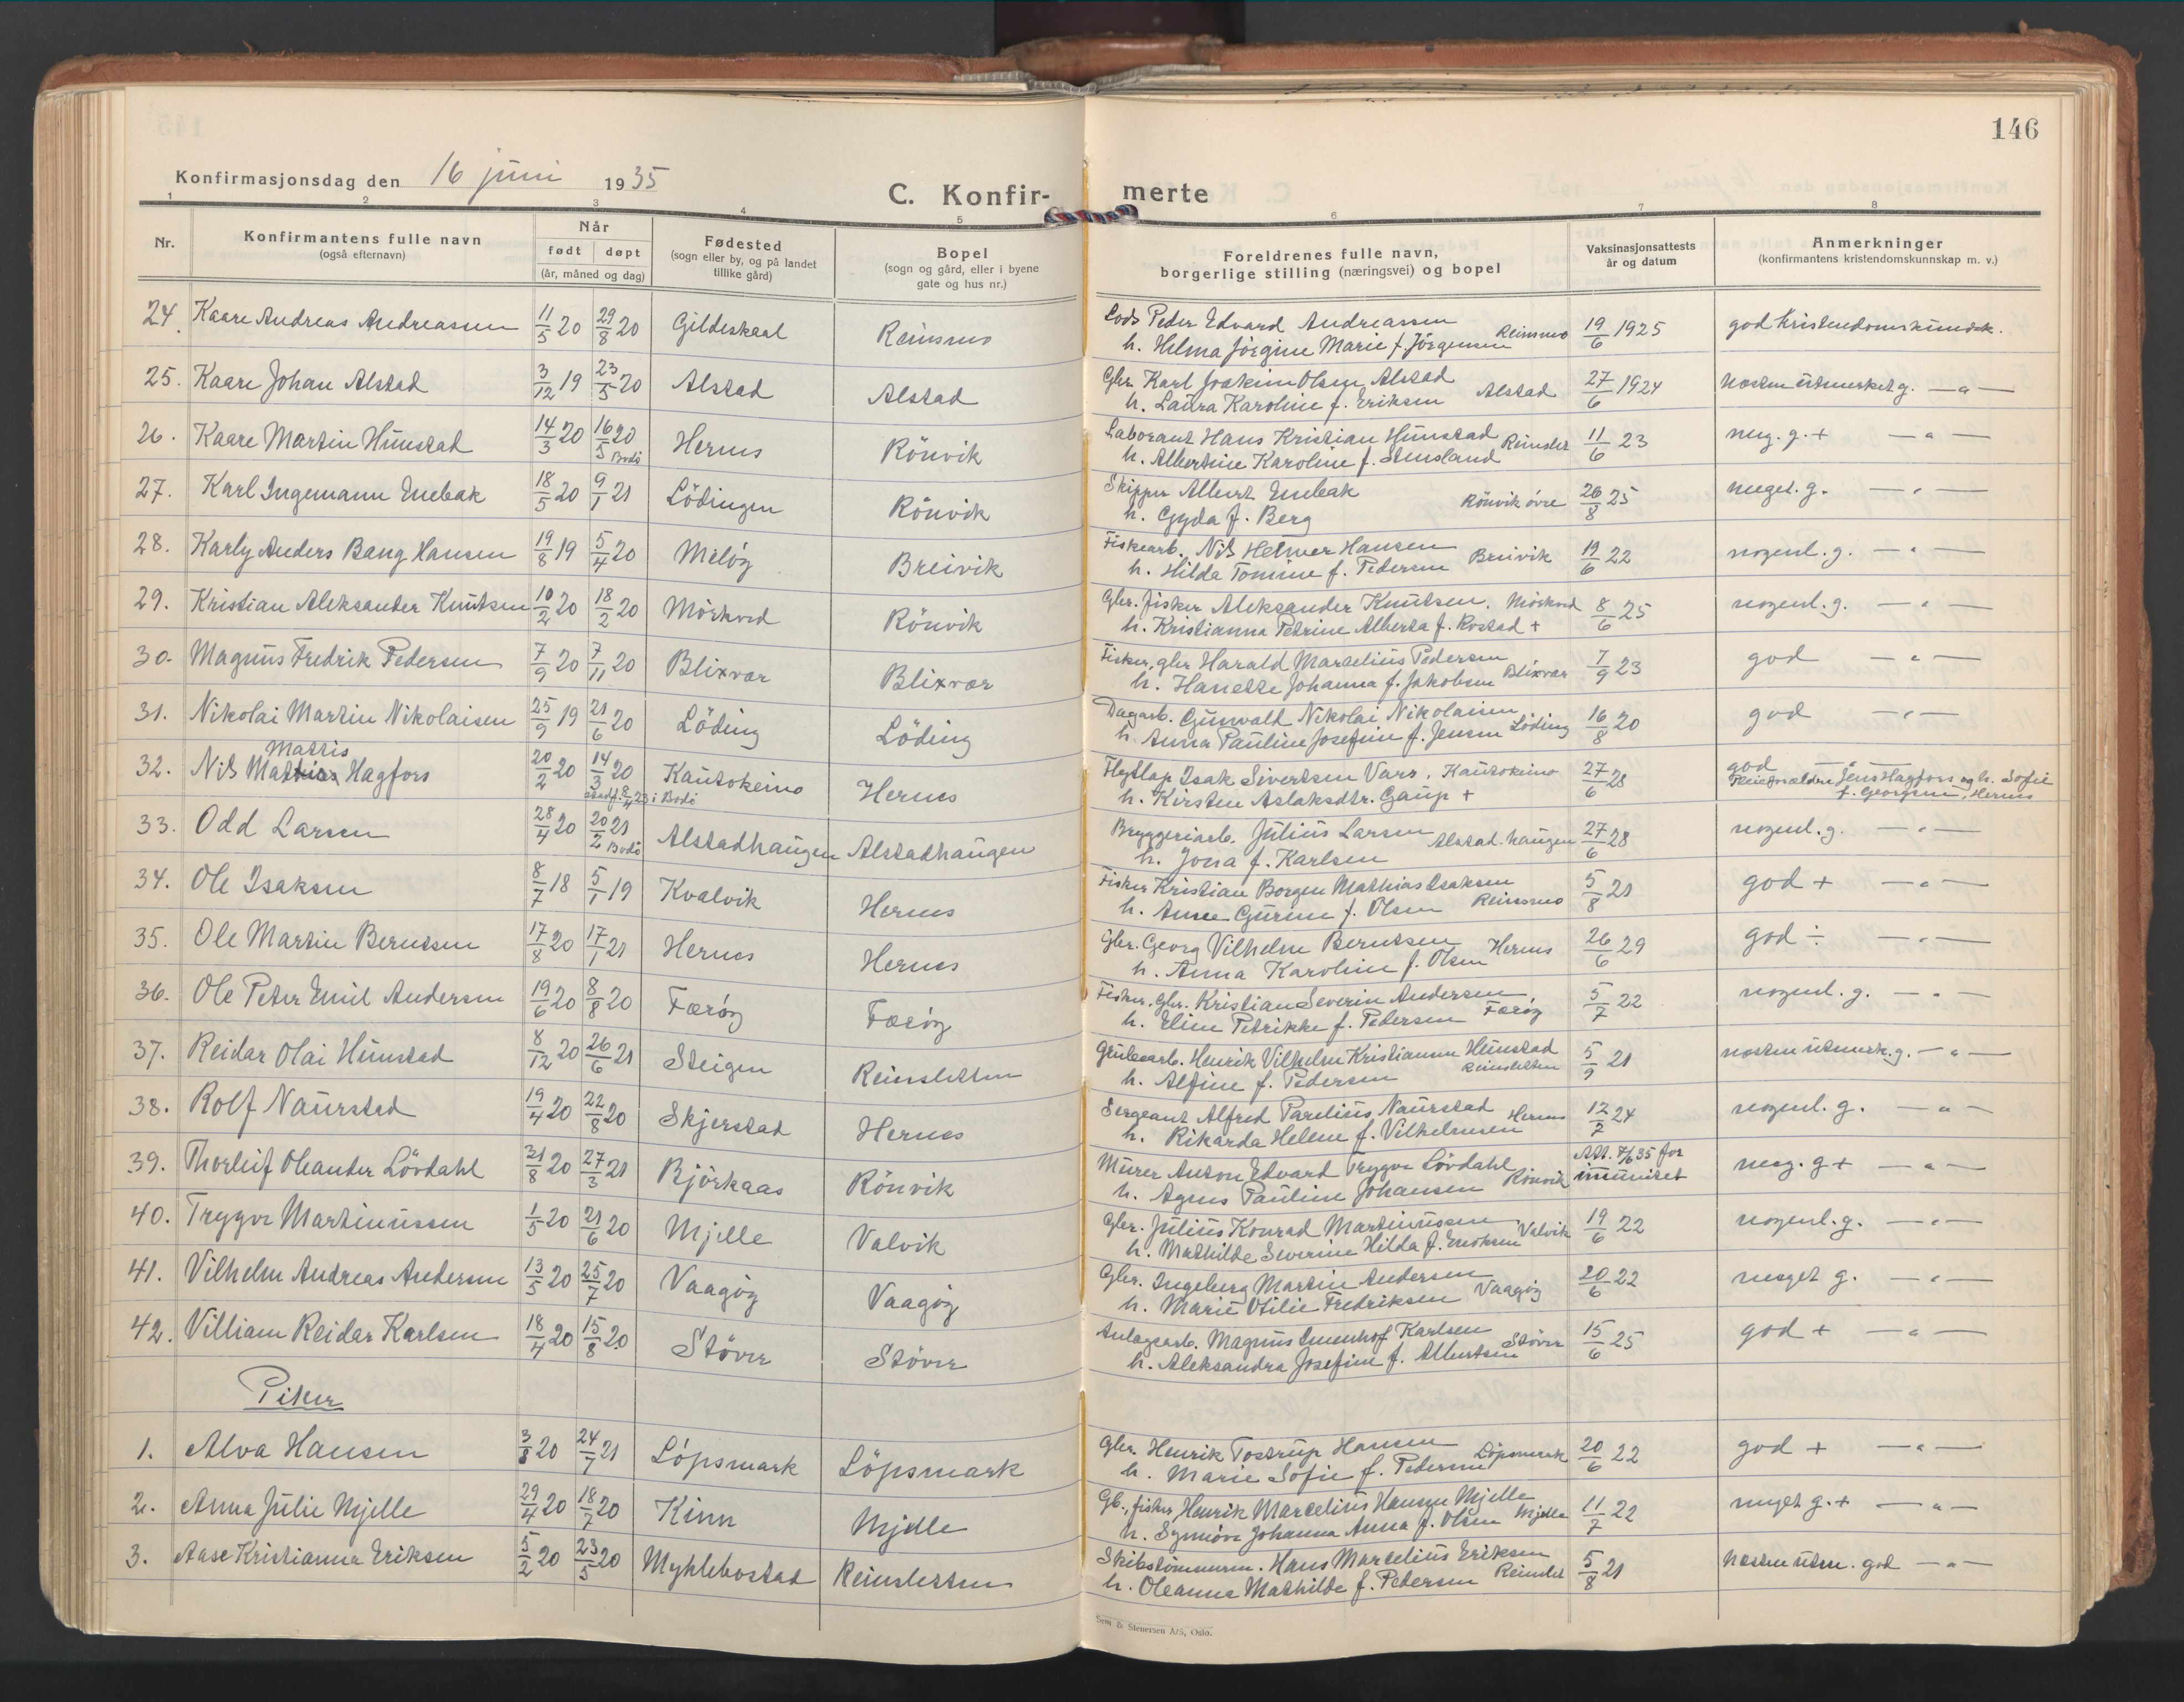 146
Konfirmasjonsdag den 16 juni 1935
C. Konfir- merte
1 2 3 4 5 6 7 8
Nr.
Konfirmantens fulle navn
(også efternavn)
Når
født døpt
(år, måned og dag)
Fødested
(sogn eller by, og på landet
tillike gård)
Bopel
(sogn og gård, eller i byene
gate og hus nr.)
Foreldrenes fulle navn,
borgerlige stilling (næringsvei) og bopel
Vaksinasjonsattests
år og datum
Anmerkninger
(konfirmantens kristendomskunnskap m. v.)
24. Kaare Andreas Andreassen 11/5 20 29/8 20 Gildeskaal Reinsmo Lods Peder Edvard Andreassen
h. Helma Jörgine Marie f. Jörgensen Reinsmo 19/6 1925 god kristendomskundsk.
25. Kaare Johan Alstad 3/12 19 23/5 20 Alstad Alstad Gbr. Karl Joakim Olsen Alstad
h. Laura Karoline f. Eriksen Alstad 27/6 1924 næsten utmerket g. —"—
26. Kaare Martin Hunstad 14/3 20 16/5 20 Bodö Hernes Rönvik Laborant Hans Kristian Hunstad
h. Albertine Karoline f. Stensland Reinslet 11/6 23 meg. g. + —"—
27. Karl Ingemann Enebak 18/5 20 9/1 21 Lödingen Rönvik Skipper Albert Enebak
h. Gyda f. Berg Rönvik övre 26/8 25 meget. g. —"—
28. Karly Anders Bang Hansen 19/8 19 5/4 20 Melöy Breivik Fiskearb. Nils Helmer Hansen
h. Hilda Tomine f. Pedersen Breivik 19/6 22 nogenl. g. —"—
29. Kristian Aleksander Knutsen 10/2 20 18/2 20 Mörkved Rönvik Gbr. fisker Aleksander Knutsen. Mörkved
h. Kristianna Petrine Alberta f. Rostad + 8/6 25 nogenl. g. —"—
30. Magnus Fredrik Pedersen 7/9 20 7/11 20 Blixvær Blixvær Fisker, gbr Harald Marselius Pedersen
h. Hanette Johanna f. Jakobsen Blixvær 7/9 23 god —"—
31. Nikolai Martin Nikolaisen 25/9 19 21/6 20 Löding Löding Dagarb. Gunvald Nikolai Nikolaisen
h. Anna Pauline Josefine f. Jensen Löding 16/8 20 god —"—
Mattis
32. Nils Mathias Hagfors 20/2 20 14/3 20 Kautokeino Hernes Flytlap Isak Sivertsen Vars. Kautokeino
h. Kirsten Aslaksdtr. Gaup + 27/6 28 god —"—
Pleieforældre Jens Hagfors og h. Sofie
f. Georgsen, Hernes
stadf. 8/4 23 i Bodö
33. Odd Larsen 28/4 20 20/2 21 Bodö Alstadhaugen Alstadhaugen Bryggeriarb. Julius Larsen
h. Jona f. Karlsen Alstad. haugen 27/6 28 nogenl. g. —"—
34. Ole Isaksen 8/7 18 5/1 19 Kvalvik Hernes Fisker Kristian Borgen Mathias Isaksen
h. Anne Gurine f. Olsen Reinsmo 5/8 21 god + —"—
35. Ole Martin Berntsen 17/8 20 17/1 21 Hernes Hernes Gbr. Georg Vilhelm Berntsen
h. Anna Karoline f. Olsen Hernes 26/6 29 god ÷ —"—
36. Ole Peter Emil Andersen 19/6 20 8/8 20 Færöy Færöy Fisker, gbr. Kristian Severin Andersen
h. Eline Petrikke f. Pedersen Færöy 5/7 22 nogenl. g. —"—
37. Reidar Olai Hunstad 8/12 20 26/6 21 Steigen Reinsletten Grubearb. Henrik Vilhelm Kristiannn Hunstad
h. Alfine f. Pedersen Reinsletten 5/9 21 næsten utmerk. g. —"—
38. Rolf Naurstad 19/4 20 22/8 20 Skjerstad Hernes Sergeant Alfred Parelius Naurstad
h. Rikarda Helene f. Vilhelmsen Hernes 12/7 24 nogenl. g. —"—
39. Thorleif Oleander Lövdahl 31/8 20 27/3 21 Björkaas Rönvik Murer Anton Edvard Trygve Lövdahl
h. Agnes Pauline Johansen Rönvik Att. 7/6 35 for
immunitet meg. g + —"—
40. Trygve Martinussen 1/5 20 21/6 20 Mjelle Valvik Gbr. Julius Konrad Martinussen
h. Mathilde Severine Hilda f. Enoksen Valvik 19/6 22 nogenl. g. —"—
41. Vilhelm Andreas Andersen 13/5 20 25/7 20 Vaagöy Vaagöy Gbr. Ingeberg Martin Andersen
h. Marie Otilie Fredriksen Vaagöy 20/6 22 meget g. —"—
42. Villiam Reidar Karlsen 18/4 20 15/8 20 Stöver Stöver Anlægsarb. Magnus Karlsen
h. Aleksandra Josefine f. Albertsen Stöver 15/6 25 god + —"—
Piker
1. Alva Hansen 3/8 20 24/7 21 Löpsmark Löpsmark Gbr. Henrik Tostrup Hansen
h. Marie Sofie f. Pedersen Löpsmark 20/6 22 god + —"—
2. Anna Julie Mjelle 29/4 20 18/7 20 Kinn Mjelle Gb., fisker Henrik Marcelius Hansen Mjelle
h. Synnöve Johanna Anna f. Olsen Mjelle 11/7 22 meget g. + —"—
3. Aase Kristianna Eriksen 5/2 20 23/5 20 Myklebostad Reinsletten Skibstömmerm. Hans Marselius Eriksen
h. Oleanna Mathilde f. Pedersen Reinslet 5/8 21 næsten utm. god —"—
Sem & Stenersen A/S, Oslo.